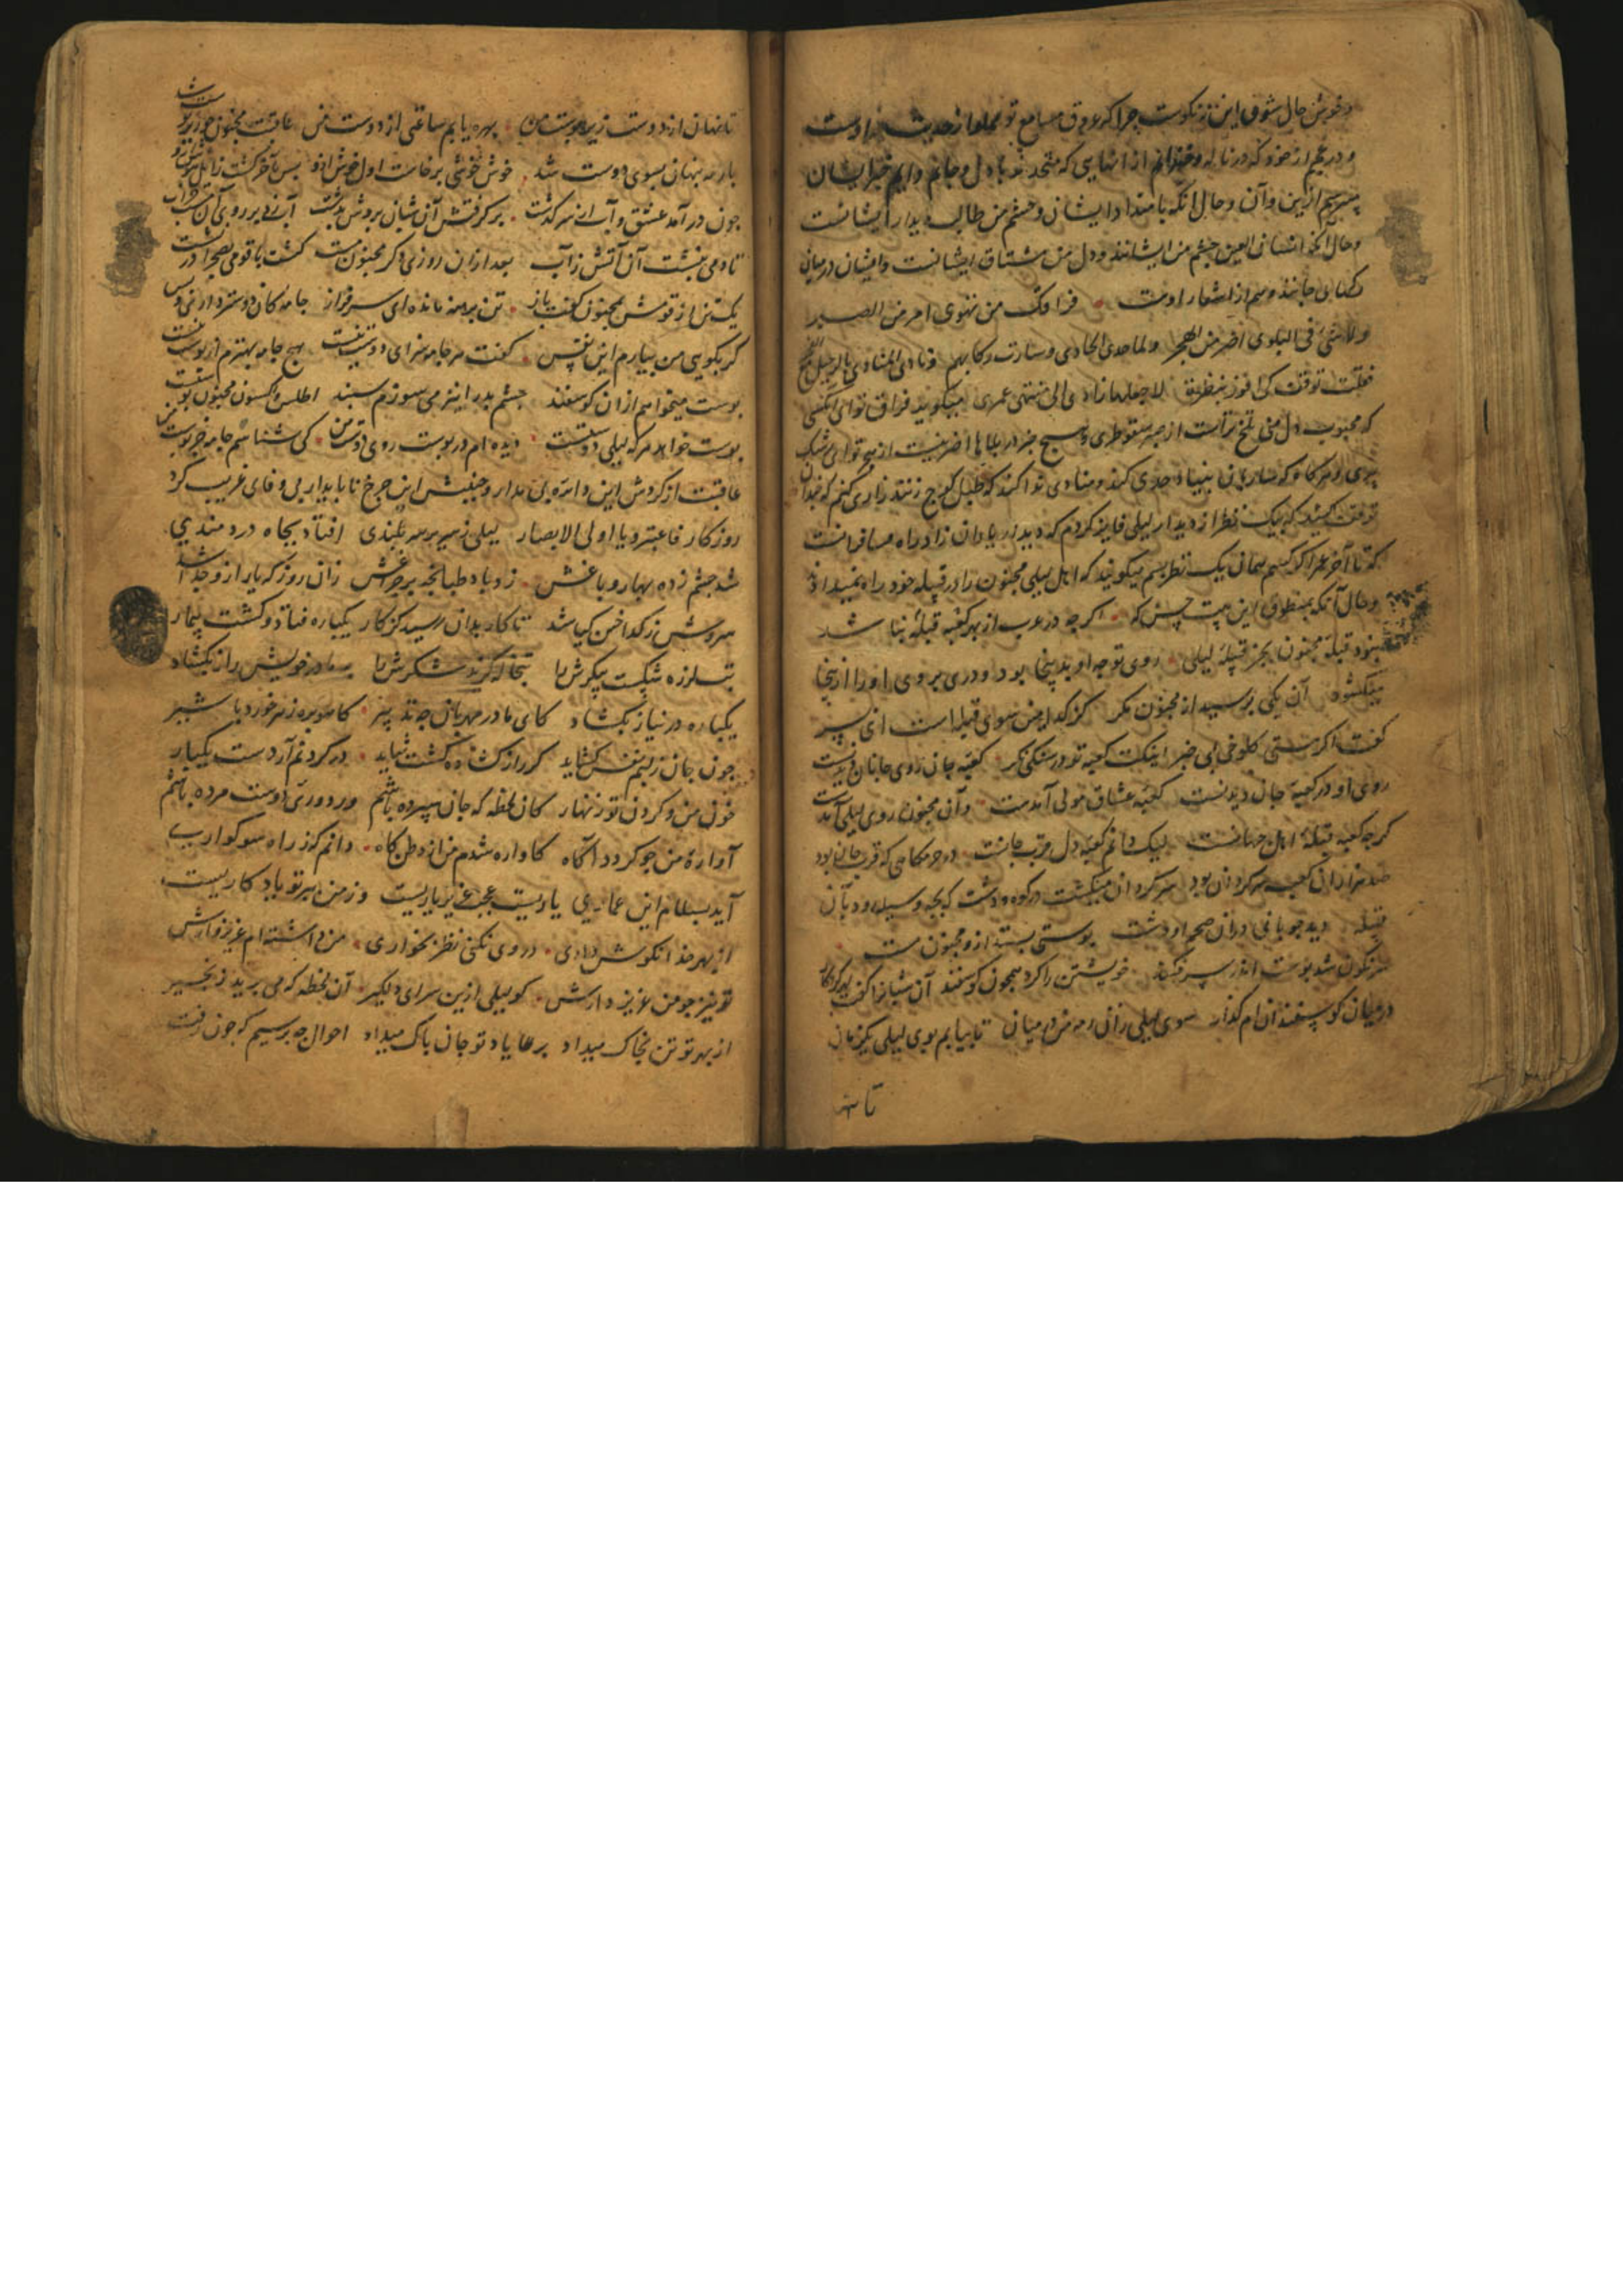 و خوش حال شوق این نیکوست چرا که عروق مسامع تو مملو از حدیث اوست
و در عجبم از خود که در ناله و از انهایی که متحد شد با دل و جانم دایم خبر ایشان
میپرسم ازین و آن و حال انکه بامند ایشان و چشم من طالب دیدار ایشانست
و حال آنکه انسان العین چشم من ایشانند و دل من مشتاق ایشانست و ایشان در میان
جانند و هم از اشعار اوست فراقک من تهوی امر من الصبر
ولا شئ فی البلوی اضر من الهجر ولما حدی الحادی وسارت رکابهم ونادی المنادی بالرحیل
فقلت توقف کی افوز بنظرة لاجعلها زادی الی منتهی عمری میگوید فراق تو ای کسی
که محبوب دل منی تلخ تر است از صبر سقوطری و هیچ چیز در بلاها اضر نیست از هجر تو
و هر گاه که ساربان بنیاد حدی کند و منادی ندا کند که طبل کوچ زنند زاری کنم که چندان
توقف کنید که بیک نظر از دیدار لیلی فایز گردم که دیدار یاران زاد راه مسافرانست
که تا آخر عمر اگر کنیم همان یک نظر بسم میگویند که اهل لیلی مجنون را در قبیله خود راه نمیداد
و حال آنکه بمنطوق این بیت که اگر چه در عرب از بهر کعبه قبله بنا شد
نبود قبله مجنون بجز قبیله لیلی روی توجه او بدینجا بود و دری بروی او را ازینجا
میگشود آن یکی پرسید از مجنون مگر کز کدامین سوی قبله است ای پسر
گفت اگر هستی کلوخی بی خبر اینکت کعبه تو در سنگی نگر کعبه جان روی جانان دیدنست
روی او در کعبه جان دیدنست کعبه عشاق مولی آمدست وآن مجنون روی لیلی آمدست
گرچه کعبه قبله اهل جهانست لیک دانم کعبه دل قرب جانست در حرمگاهی که قرب جان بود
صد هزاران کعبه سرگردان بود سرگردان میگشت در کوه و دشت که بچه وسیله رود بآن
قبیله دید چوپانی دران صحرا و دشت پوستی بستد ازو مجنون مست
سرنگون شد پوست اندر سر فکند خویشتن را کرد همچون گوسفند آن شبان را گفت بهر کردکار
در میان گوسفندان ام گذار سوی لیلی ران رمه من در میان تا بیابم بوی لیلی یکزمان
تا نهان
تا نهان از دوست زیر پوست من بهره یابم ساعتی از دوست من عاقبت مجنون چو زیر پوست شد
با رمه پنهان بسوی دوست شد خوش خوشی برخاست اول جوش ازو پس بآخر گشت زایل هوش ازو
چون در آمد عشق و آب از سر گذشت برگرفتش آن شبان بردش بدشت آب زد بر روی آن مست خراب
تا دمی بنشست آن آتش زآب بعد ازان روزی دگر مجنون مست گشت با قومی بصحرا در نشست
یک تن از قومش بمجنون گفت باز تن برهنه مانده ای سرفراز جامه کان دوستر داری و بس
گر بگویی من بیارم این نفس گفت هر جامه سزای دوست نیست هیچ جامه بهترم از پوست نیست
پوست میخواهم از ان گوسفند چشم بد را نیز می سوزم سپند اطلس و اکسون مجنون پوستست
پوست خواهد هر که لیلی دوستست دیده ام در پوست روی دوست من کی شناسم جامه جز پوست من
عاقبت از گردش این دایره بی مدار و جنبش این چرخ ناپایدار بی وفای غریب گرد
روزگار فاعتبروا یا اولی الابصار لیلی ز سریر سربلندی افتاد بچاه دردمندی
شد چشم زده بهار و باغش زد باد طبانچه بر چراغش زان روز که یار ازو جدا شد
سروش ز گداختن گیا شد تا کار بدان رسید کز کار یکباره فتاد و گشت بیمار
تب لرزه شکست پیکرش را تبخاله گزند شکرش را بر مادر خویش راز بگشاد
یکباره در نیاز بگشاد کای مادر مهربان چه تدبیر کاهو بره زهر خورد با شیر
چون جان ز لبم نفس گشاید گر راز گشاده گشت شاید در گردنم آر دست یکبار
خون من و گردن تو زنهار کان لحظه که جان سپرده باشم وز دوری دوست مرده باشم
آوارۀ من چو گردد آگاه کاواره شدم من از وطن گاه دانم کز راه سوگواری
آید بسلام این عماری یاریست عجب غریب یاریست وز من ببر تو یادگاریست
از بهر خدا نکوش داری در وی نکنی نظر بخواری من داشته ام عزیزوارش
تو نیز چو من عزیز دارش گو لیلی ازین سرای دلگیر آن لحظه که می برید زنجیر
از بهر تو تن بخاک میداد بر یاد تو جان پاک میداد احوال چه پرسیم که چون رفت